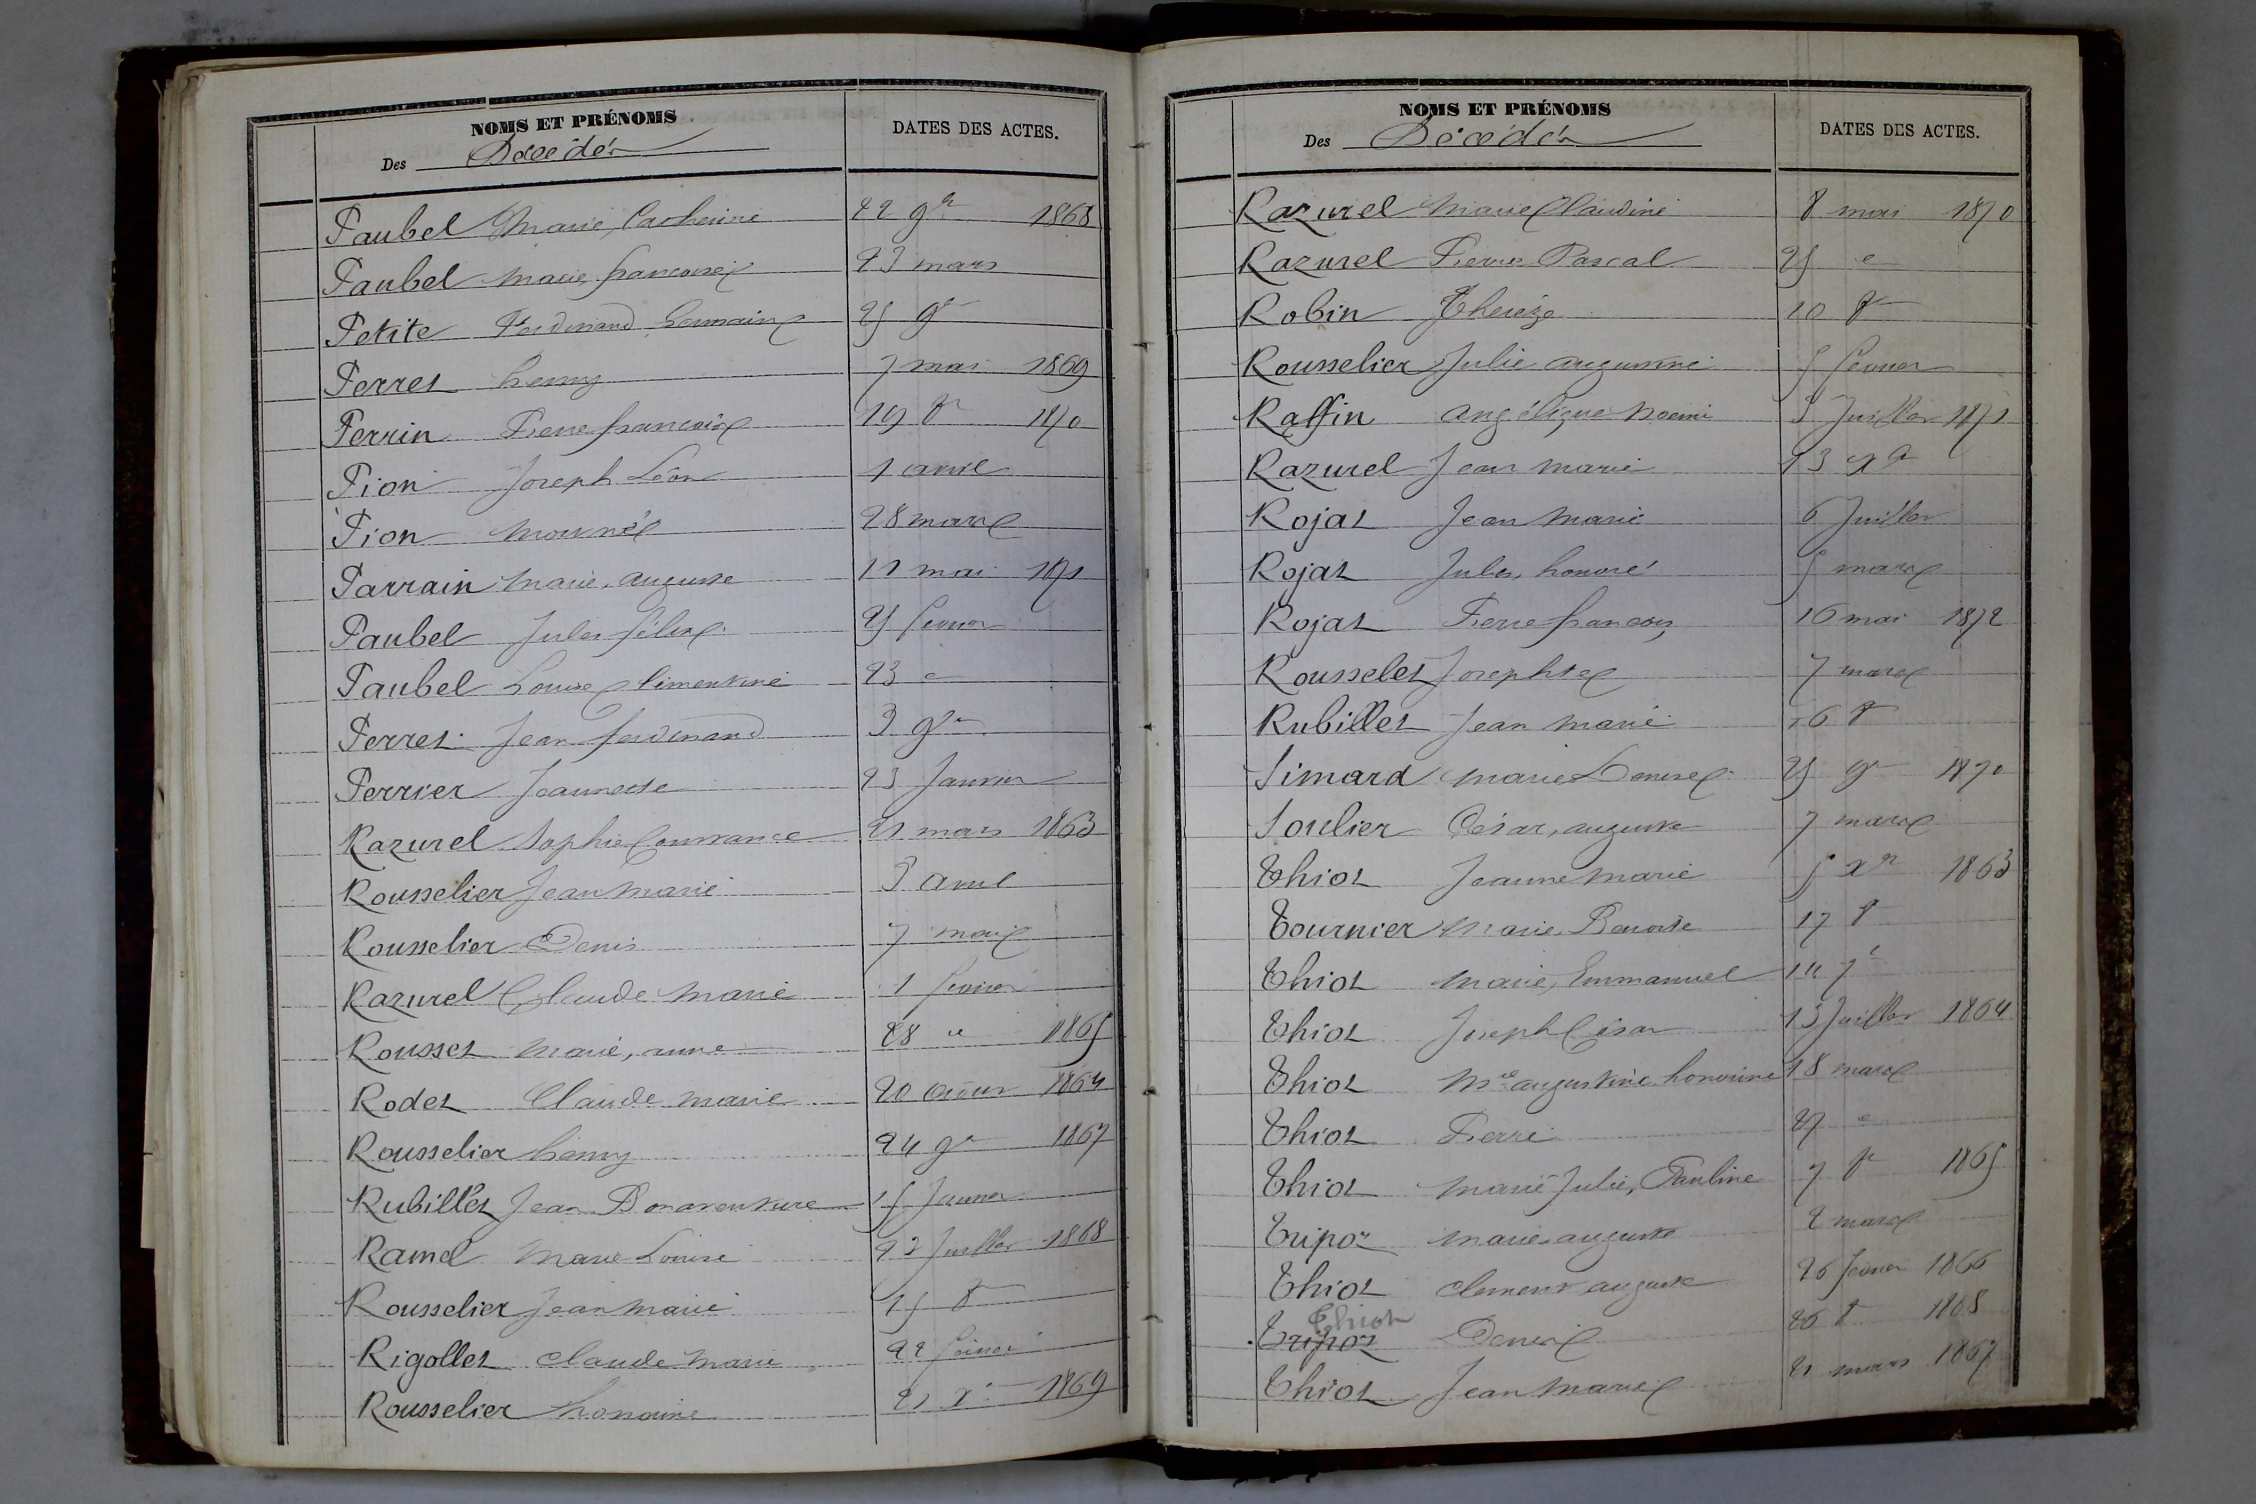 NOMS ET PRÉNOMS
Des Décédés
DATES DES ACTES.
Paubel Marie, Catherine 22 9bre 1868
Paubel marie, francoise 23 mars
Petite Ferdinand Germain 25 9bre
Perret henry 7 mai 1869
Perrin Pierre francois 19 1870
Pion Joseph Léon 1 avril
Pion mounée 28 mars
Parrain marie, auguste 11 mai 1871
Paubel Jules félix 25 fevrier
Paubel Louise Clementine 23
Perret Jean ferdinand 3 9bre
Perrier Jeannette 23 Janvier
Razurel Sophie Constance 21 mars 1863
Rousselier Jean marie 3 avril
Rousselier Denis 7 mai
Razurel Claude marie 1 fevrier
Rousset marie, anne 28 1865
Rodet Claude marie 20 août 1864
Rousselier henry 24 9bre 1867
Rubillet Jean Bonaventure 15 Janvier
Ramel Marie Louise 23 Juillet 1868
Rousselier Jean marie 15
Rigollet claude marie 22 fevrier
Rousselier honorine 21 Xbre 1869
NOMS ET PRÉNOMS
Des Décédés
DATES DES ACTES.
Razurel Marie Claudine 8 mai 1870
Razurel Pierre Pascal 25
Robin Thereze 10
Rousselier Julie augustine 5 fevrier
Raffin angélique Noemi 3 Juillet 1871
Razurel Jean marie 13 Xbre
Rojat Jean Marie 6 Juillet
Rojat Jules, honoré 5 mars
Rojat Pierre francois 16 mai 1872
Rousselet Josephte 7 mars
Rubillet Jean marie 16
Simard marie Louise 25 9bre 1870
Soulier César, auguste 7 mars
Thiot Jeanne Marie 5 Xbre 1863
Tournier Marie Benoite 17
Thiot marie, Emmanuel 14 7bre
Thiot Joseph César 13 Juillet 1864
Thiot Mie augustine honorine 18 mars
Thiot Pierre 27
Thiot marie Julie, Pauline 7 1865
Tripoz marie auguste 2 mars
Thiot clement auguste 26 fevrier 1866
Thiot
Tripoz Denis 26 1865
Thiot Jean marie 21 mars 1867